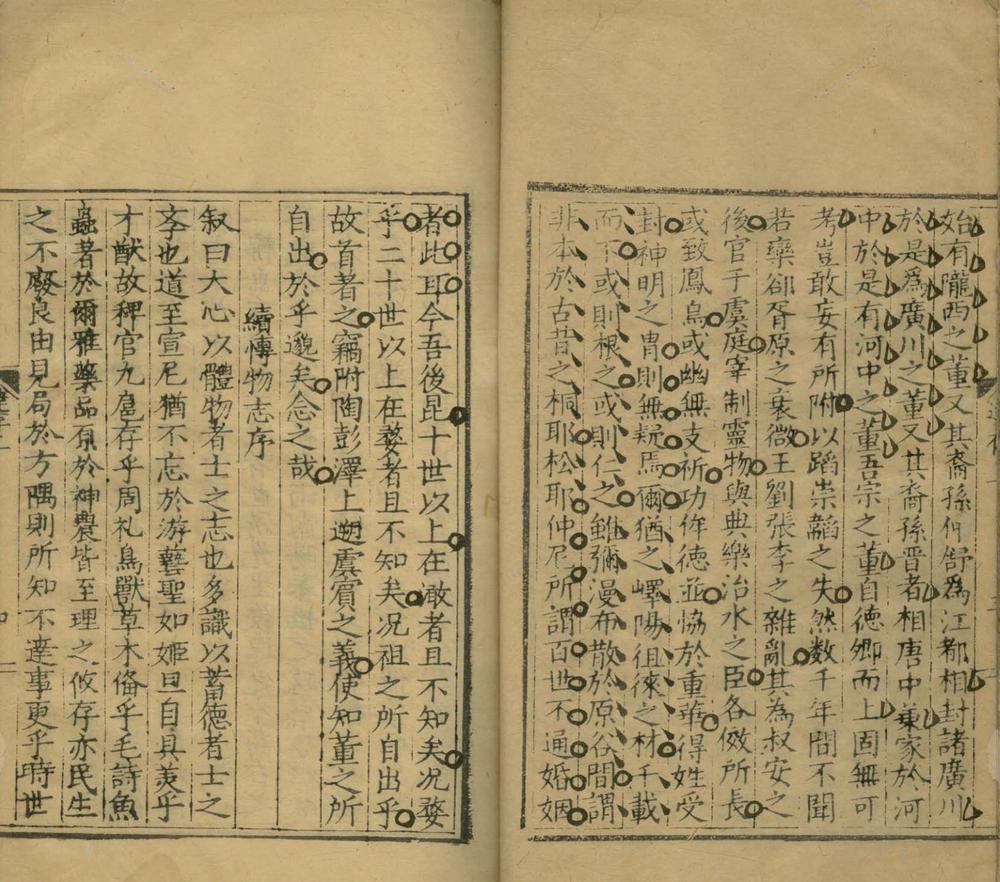 始有隴西之董又其裔孫仲舒為江都相封諸廣川
於是爲廣川之董又其裔孫晋者相唐中兼家於河
中於是有河中之董吾宗之董自德卿而上固無可
考豈敢妄有所附以蹈崇韜之失然数千年間不聞
若欒郤胥原之衰微王劉張李之雜亂其為叔安之
後官于虞庭宰制靈物與典樂治水之臣各俲所長
或致鳳鳥或幽無支祈功侔徳並恊於重華得姓受
封神明之胄則無疑焉爾猶之嶧陽徂徠之材千載
而下或則根之或則仁之雖彌漫布散於原谷間謂
非本於古昔之桐耶松耶仲尼所謂百世不通婚姻
者此耳今吾後昆十世以上在澉者且不知矣况婺
乎二十世以上在婺者且不知矣况祖之所自出乎
故首者之竊附陶彭澤上遡虞賓之義使知董之所
自出於乎邈矣念之哉
續慱物志序
叙曰大心以體物者士之志也多識以畜德者士之
孝也道至宣尼猶不忘於游藝聖如姬旦自具美乎
才猷故稗官九扈存乎周礼鳥獸草木俻乎毛詩魚
蟲著於爾雅藥品原於神農皆至理之攸存亦民生
之不廢良由見局於方隅則所知不達事更乎時世